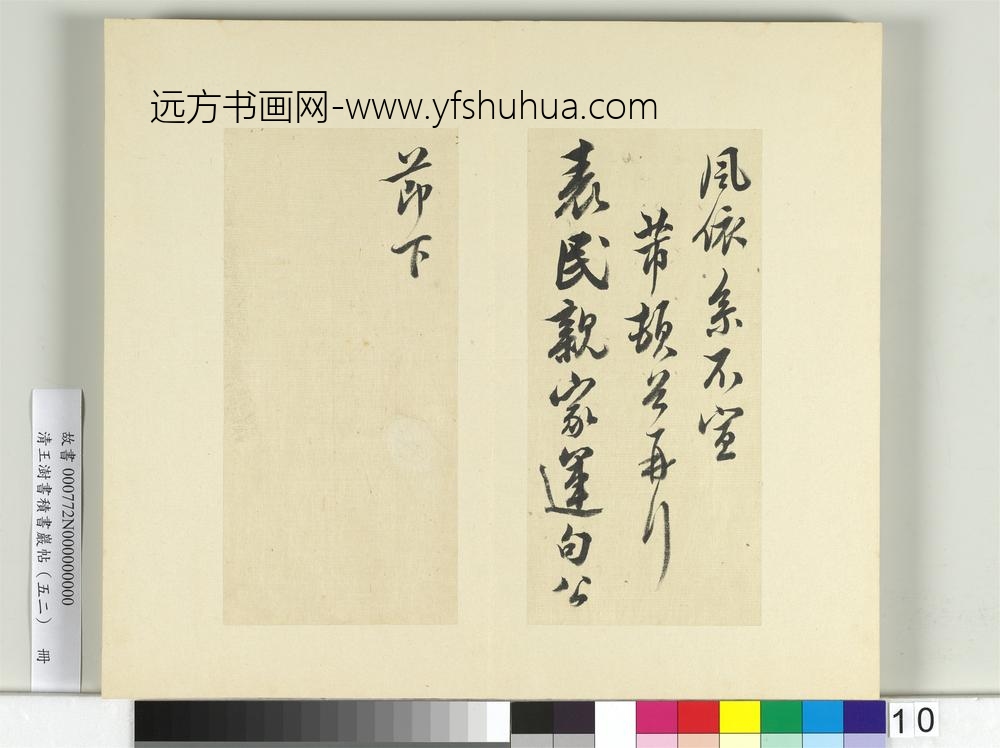 远方书画网-www.yfshuhua.com
風依系不宣
芾頓首再拜
表民親家運句公
莭下
故書 000772N000000000
清王澍書積書巖帖（五二） 冊
10